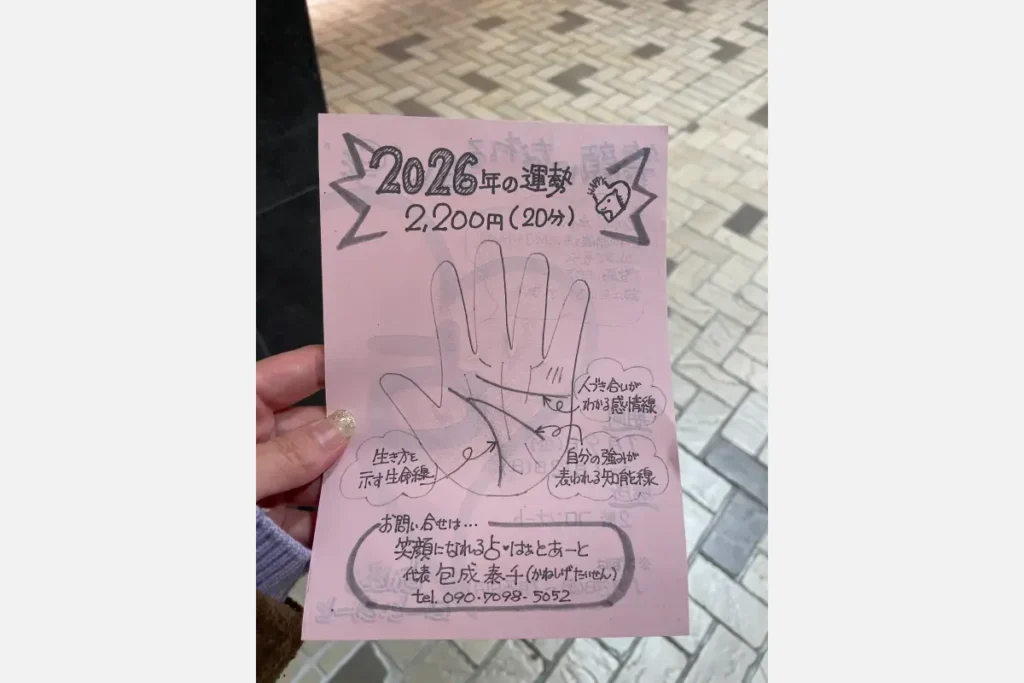 2026年の運勢
2,200円(20分)
人づき合いが
わかる感情線
生き方を
示す生命線
自分の強みが
表われる知能線
お問い合せは…
笑顔になれる占♥はぁとあーと
代表 包成 泰千(かねしげたいせん)
tel. 090-7098-5052